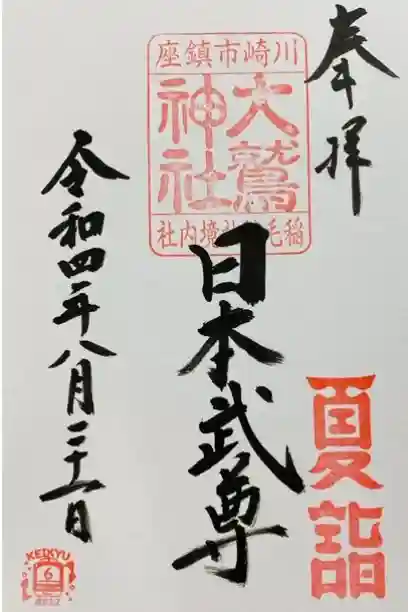 奉拝
川崎市鎮座
大鷲
神社
稲毛神社境内社
日本武尊
夏詣
令和四年八月二十一日
KEIKYU
6